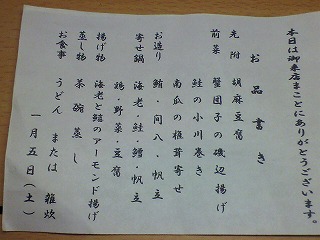 本日は御来店まことにありがとうございます。
お品書き
先附 胡麻豆腐
前菜 蟹団子の磯辺揚げ
鮭の小川巻き
南瓜の椎茸寄せ
お造り 鮪・間八・帆立
寄せ鍋 海老・鮭・鱈・帆立
鶏・野菜・豆腐
揚げ物 海老と鱚のアーモンド揚げ
蒸し物 茶碗蒸し
お食事 うどん または 雑炊
一月五日(土)